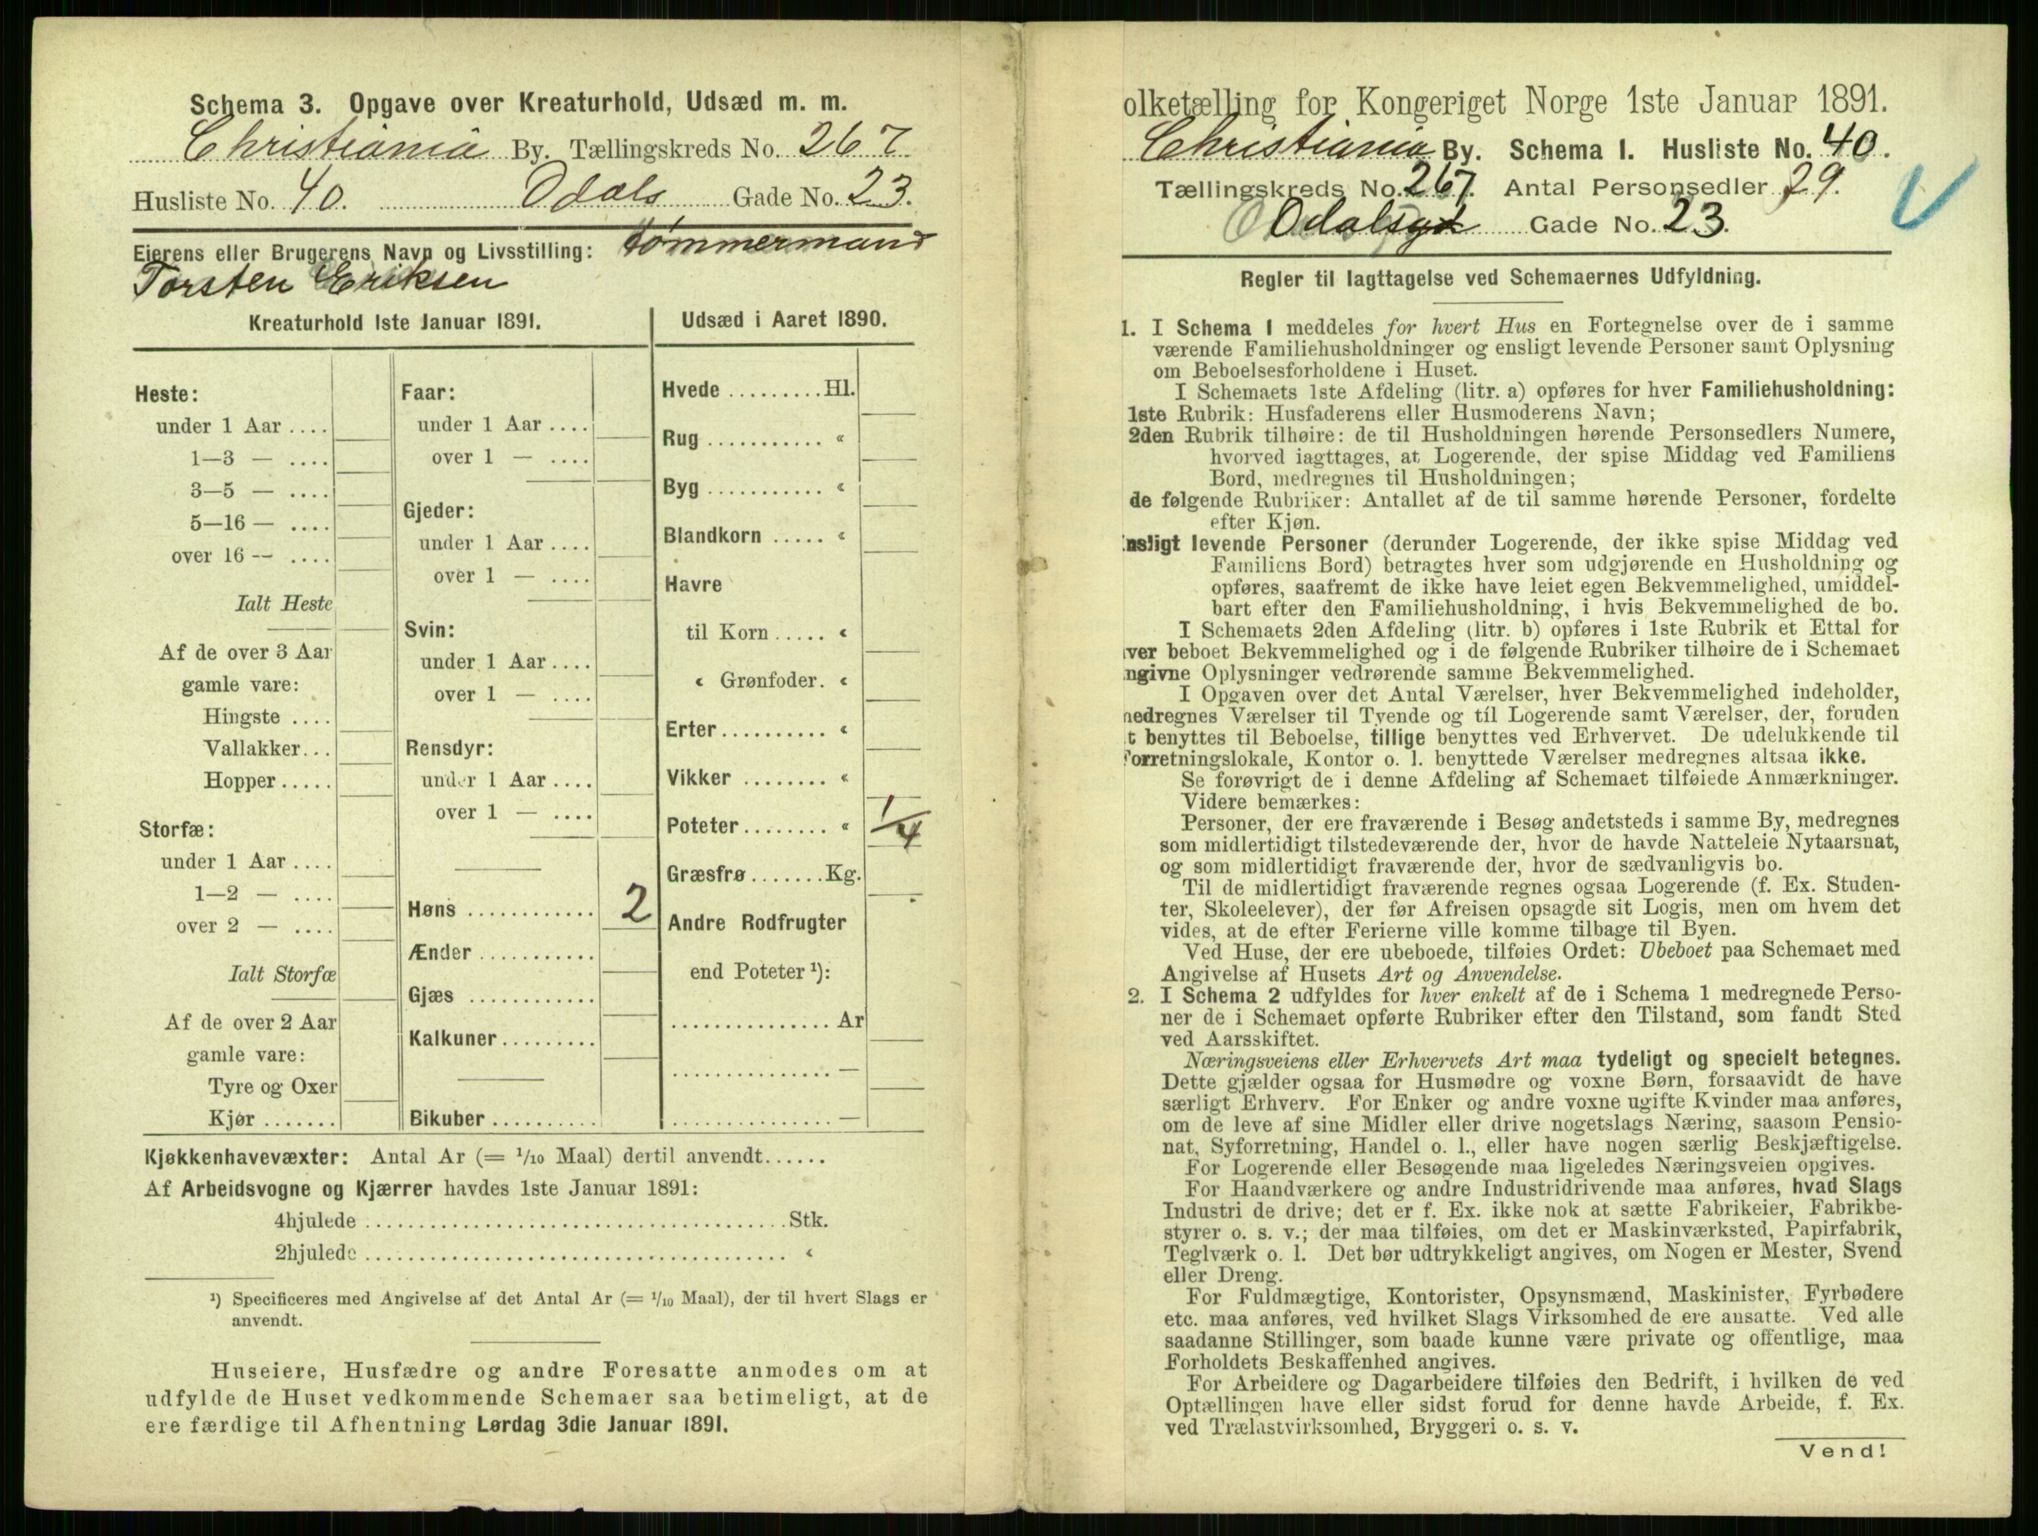 Schema 3. Opgave over Kreaturhold, Udsæd m. m.
Christiania By. Tællingskreds No. 267
Husliste No. 40. Odals Gade No. 23.
Eierens eller Brugerens Navn og Livsstilling: tømmermand
Torsten Eriksen
Kreaturhold 1ste Januar 1891.
Heste:
under 1 Aar ....
1—3 — ....
3—5 — ....
5—16 — ....
over 16 -- ....
Ialt Heste
Af de over 3 Aar
gamle vare:
Hingste ....
Vallakker...
Hopper.....
Storfæ:
under 1 Aar ....
1—2 — ....
over 2 — ....
Ialt Storfæ
Af de over 2 Aar
gamle vare:
Tyre og Oxer
Kjør .......
Faar:
under 1 Aar ....
over 1 — ....
Gjeder:
under 1 Aar ....
over 1 — ....
Svin:
under 1 Aar ....
over 1 — ....
Rensdyr:
under 1 Aar ....
over 1 — ....
Høns ............ 2
Ænder ...........
Gjæs ............
Kalkuner.........
Bikuber ..........
Udsæd i Aaret 1890.
Hvede .........Hl.
Rug ........... “
Byg ........... “
Blandkorn ..... “
Havre
til Korn ..... “
“ Grønfoder. “
Erter.......... “
Vikker ........ “
Poteter........ “ 1/4
Græsfrø .......Kg.
Andre Rodfrugter
end Poteter ¹):
............... Ar
............... —
............... —
Kjøkkenhavevæxter: Antal Ar (= 1/10 Maal) dertil anvendt......
Af Arbeidsvogne og Kjærrer havdes 1ste Januar 1891:
4hjulede ........................................Stk.
2hjulede ........................................ “
¹) Specificeres med Angivelse af det Antal Ar (= 1/10 Maal), der til hvert Slags er
anvendt.
Huseiere, Husfædre og andre Foresatte anmodes om at
udfylde de Huset vedkommende Schemaer saa betimeligt, at de
ere færdige til Afhentning Lørdag 3die Januar 1891.
olketælling for Kongeriget Norge 1ste Januar 1891.
Christiania By. Schema 1. Husliste No. 40.
Tællingskreds No. 267. Antal Personsedler 29.
Odalsgd Gade No. 23.
Regler til Iagttagelse ved Schemaernes Udfyldning.
1. I Schema 1 meddeles for hvert Hus en Fortegnelse over de i samme
værende Familiehusholdninger og ensligt levende Personer samt Oplysning
om Beboelsesforholdene i Huset.
I Schemaets 1ste Afdeling (litr. a) opføres for hver Familiehusholdning:
1ste Rubrik: Husfaderens eller Husmoderens Navn;
2den Rubrik tilhøire: de til Husholdningen hørende Personsedlers Numere,
hvorved iagttages, at Logerende, der spise Middag ved Familiens
Bord, medregnes til Husholdningen;
de følgende Rubriker: Antallet af de til samme hørende Personer, fordelte
efter Kjøn.
nsligt levende Personer (derunder Logerende, der ikke spise Middag ved
Familiens Bord) betragtes hver som udgjørende en Husholdning og
opføres, saafremt de ikke have leiet egen Bekvemmelighed, umiddel-
bart efter den Familiehusholdning, i hvis Bekvemmelighed de bo.
I Schemaets 2den Afdeling (litr. b) opføres i 1ste Rubrik et Ettal for
ver beboet Bekvemmelighed og i de følgende Rubriker tilhøire de i Schemaet
ngivne Oplysninger vedrørende samme Bekvemmelighed.
I Opgaven over det Antal Værelser, hver Bekvemmelighed indeholder,
nedregnes Værelser til Tyende og til Logerende samt Værelser, der, foruden
t benyttes til Beboelse, tillige benyttes ved Erhvervet. De udelukkende til
orretningslokale, Kontor o. l. benyttede Værelser medregnes altsaa ikke.
Se forøvrigt de i denne Afdeling af Schemaet tilføiede Anmærkninger.
Videre bemærkes:
Personer, der ere fraværende i Besøg andetsteds i samme By, medregnes
som midlertidigt tilstedeværende der, hvor de havde Natteleie Nytaarsnat,
og som midlertidigt fraværende der, hvor de sædvanligvis bo.
Til de midlertidigt fraværende regnes ogsaa Logerende (f. Ex. Studen-
ter, Skoleelever), der før Afreisen opsagde sit Logis, men om hvem det
vides, at de efter Ferierne ville komme tilbage til Byen.
Ved Huse, der ere ubeboede, tilføies Ordet: Ubeboet paa Schemaet med
Angivelse af Husets Art og Anvendelse.
2. I Schema 2 udfyldes for hver enkelt af de i Schema 1 medregnede Perso-
ner de i Schemaet opførte Rubriker efter den Tilstand, som fandt Sted
ved Aarsskiftet.
Næringsveiens eller Erhvervets Art maa tydeligt og specielt betegnes.
Dette gjælder ogsaa for Husmødre og voxne Børn, forsaavidt de have
særligt Erhverv. For Enker og andre voxne ugifte Kvinder maa anføres,
om de leve af sine Midler eller drive nogetslags Næring, saasom Pensio-
nat, Syforretning, Handel o. l., eller have nogen særlig Beskjæftigelse.
For Logerende eller Besøgende maa ligeledes Næringsveien opgives.
For Haandværkere og andre Industridrivende maa anføres, hvad Slags
Industri de drive; det er f. Ex. ikke nok at sætte Fabrikeier, Fabrikbe-
styrer o. s. v.; der maa tilføies, om det er Maskinværksted, Papirfabrik,
Teglværk o. l. Det bør udtrykkeligt angives, om Nogen er Mester, Svend
eller Dreng.
For Fuldmægtige, Kontorister, Opsynsmænd, Maskinister, Fyrbødere
etc. maa anføres, ved hvilket Slags Virksomhed de ere ansatte. Ved alle
saadanne Stillinger, som baade kunne være private og offentlige, maa
Forholdets Beskaffenhed angives.
For Arbeidere og Dagarbeidere tilføies den Bedrift, i hvilken de ved
Optællingen have eller sidst forud for denne havde Arbeide, f. Ex.
ved Trælastvirksomhed, Bryggeri o. s. v.
Vend!